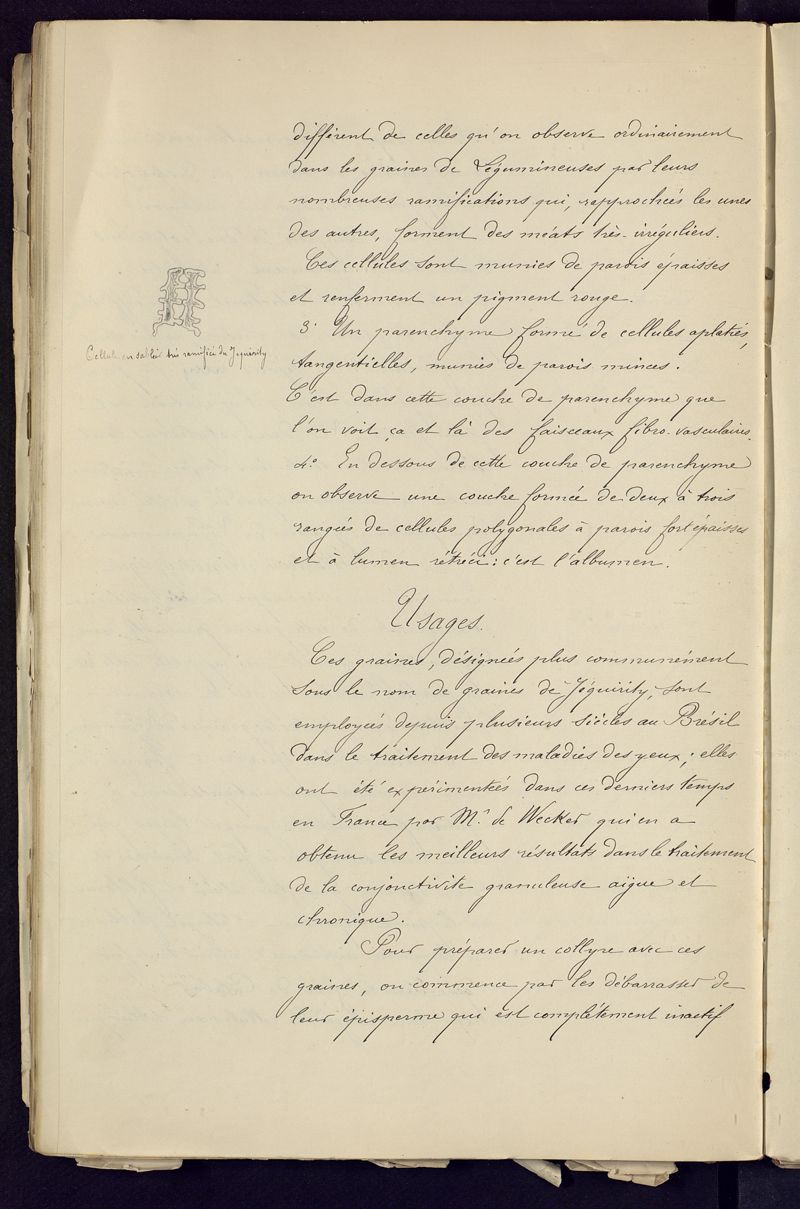 différent de celles qu'on observe ordinairement
dans les graines de Légumineuses par leurs
nombreuses ramifications qui, rapprochées les unes
des autres, forment des méats très-irréguliers.
Ces cellules sont munies de parois épaisses
et renferment un pigment rouge.
3° Un parenchyme formé de cellules aplaties,
tangentielles, munies de parois minces.
C'est dans cette couche de parenchyme que
l'on voit ça et là des faisceaux fibro-vasculaires.
4° En dessous de cette couche de parenchyme
on observe une couche formée de deux à trois
rangées de cellules polygonales à parois fort épaisses
et à lumen rétréci : c'est l'albumen.
Cellule en sablier très ramifiée du Jequirity
Usages.
Ces graines, désignées plus communément
sous le nom de graines de Jéquirity, sont
employées depuis plusieurs siècles au Brésil
dans le traitement des maladies des yeux ; elles
ont été expérimentées dans ces derniers temps
en France par Mr de Wecker qui en a
obtenu les meilleurs résultats dans le traitement
de la conjonctivite granuleuse aigüe et
chronique.
Pour préparer un collyre avec ces
graines, on commence par les débarrasser de
leur épisperme qui est complètement inactif